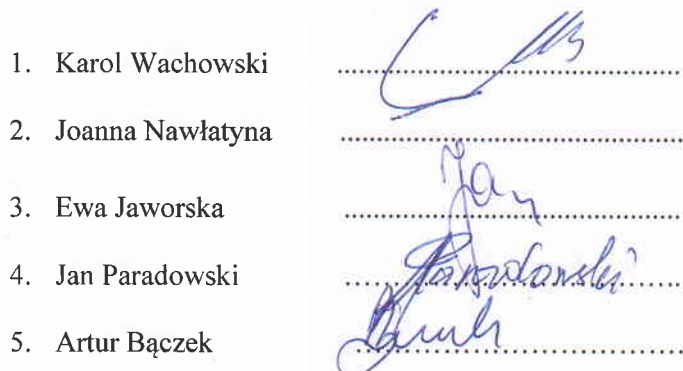 1. Karol Wachowski ..........
2. Joanna Nawłatyna ..........
Jan
3. Ewa Jaworska ..........
4. Jan Paradowski .......... Paradowski
5. Artur Bączek ..........